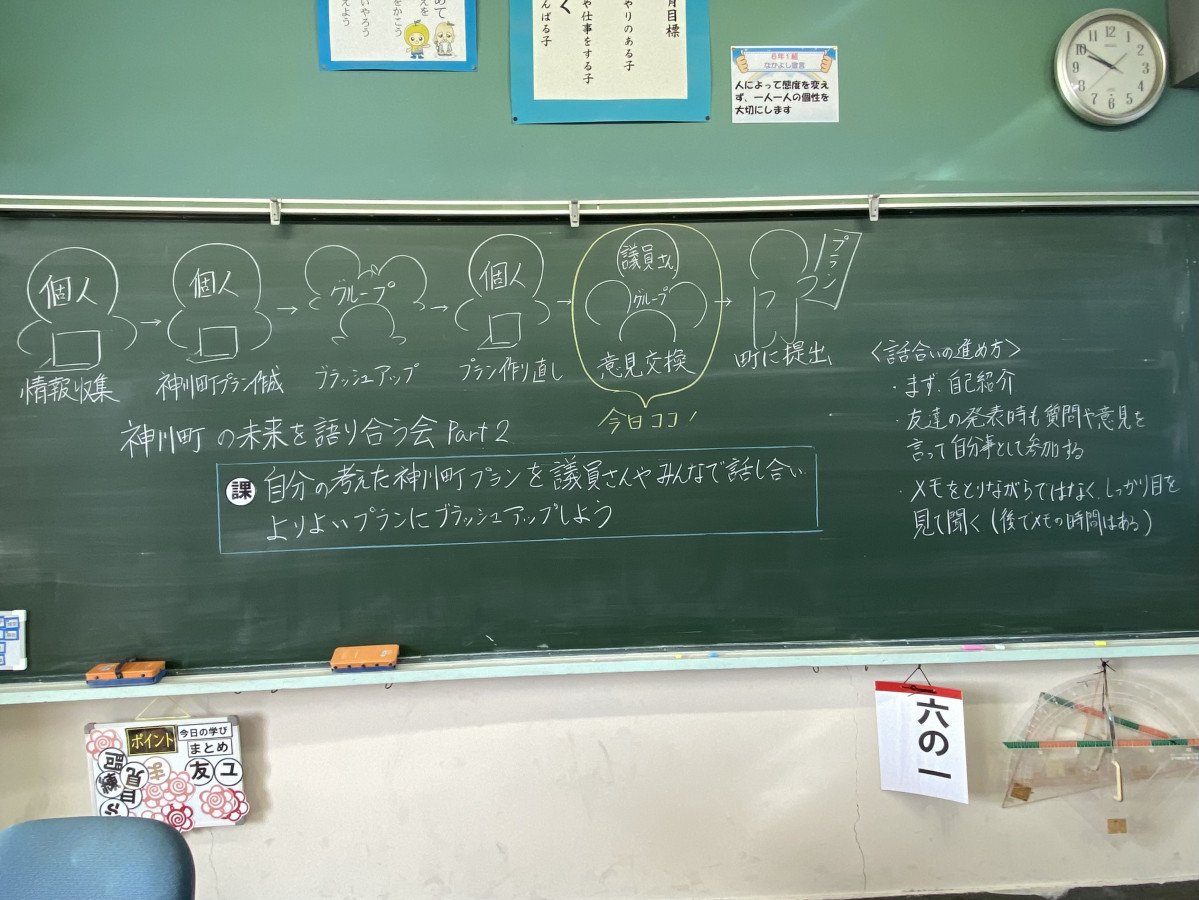 えよう
いやろう
をかこう
えを
めて
月目標
やりのある子
や仕事をする子
く
んばる子
6年1組
なかよし宣言
人によって態度を変え
ず、一人一人の個性を
大切にします
12
1
2
3
4
5
6
7
8
9
10
11
SEIKO
個人
情報収集
個人
神川町プラン作成
グループ
ブラッシュアップ
個人
プラン作り直し
議員さん
グループ
意見交換
今日ココ!
プラン
町に提出
神川町の未来を語り合う会 Part 2
課
自分の考えた神川町プランを議員さんやみんなで話し合い、
よりよいプランにブラッシュアップしよう
〈話合いの進め方〉
・まず、自己紹介
・友達の発表時も質問や意見を
言って自分事として参加する
・メモをとりながらではなく、しっかり目を
見て聞く（後でメモの時間はある）
ポイント
今日の学び
まとめ
練
問
見
目
ま
友
ユ
ふ
六の一